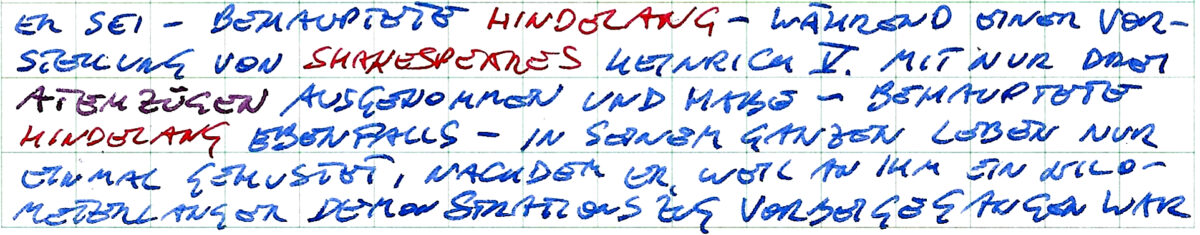 ER SEI – BEHAUPTETE HINDELANG – WÄHREND EINER VOR-
STELLUNG VON SHAKESPEARES HEINRICH V. MIT NUR DREI
ATEMZÜGEN AUSGENOMMEN UND HABE – BEHAUPTETE
HINDELANG EBENFALLS – IN SEINEM GANZEN LEBEN NUR
EINMAL GEHUSTET, NACHDEM ER, WEIL AN IHM EIN KILO-
METERLANGER DEMONSTRATIONSZUG VORBEIGEGANGEN WAR